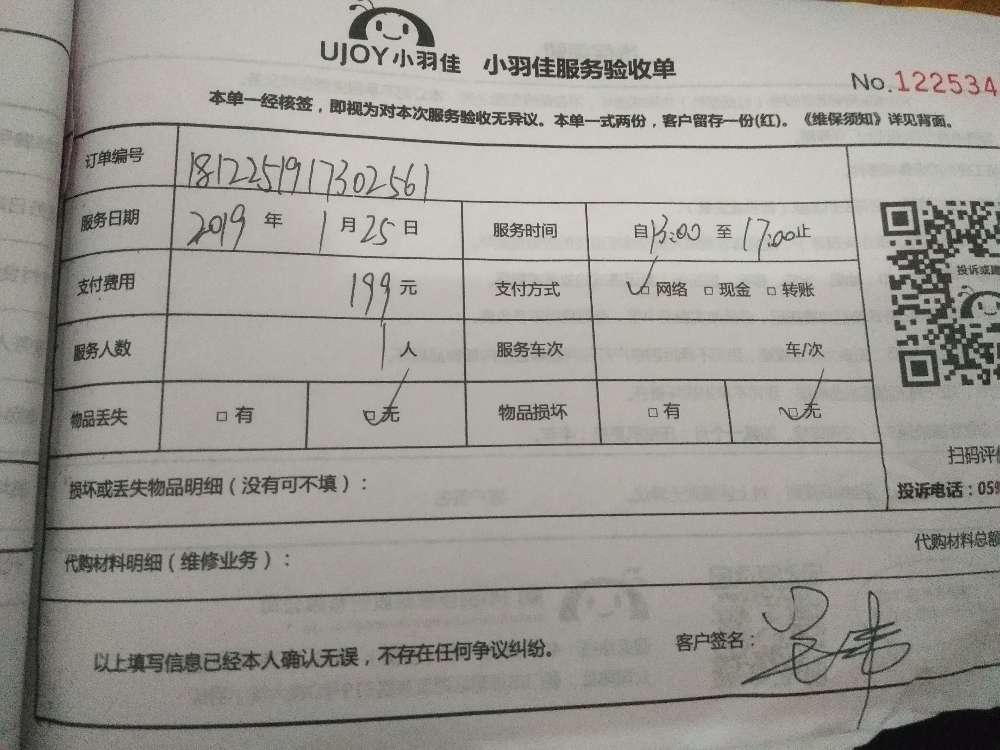 UJOY小羽佳 小羽佳服务验收单
No.122534
本单一经核签，即视为对本次服务验收无异议。本单一式两份，客户留存一份(红)。《维保须知》详见背面。
订单编号 181225191730256​1
服务日期 2019 年 1 月 25 日 服务时间 自13:00 至 17:00止
支付费用 199 元 支付方式 □ 网络 □ 现金 □ 转账
投诉或建
服务人数 1 人 服务车次 车/次
物品丢失 □ 有 □ 无 物品损坏 □ 有 □ 无
扫码评价
损坏或丢失物品明细（没有可不填）：
投诉电话：059
代购材料明细（维修业务）：
代购材料总额
以上填写信息已经本人确认无误，不存在任何争议纠纷。
客户签名：